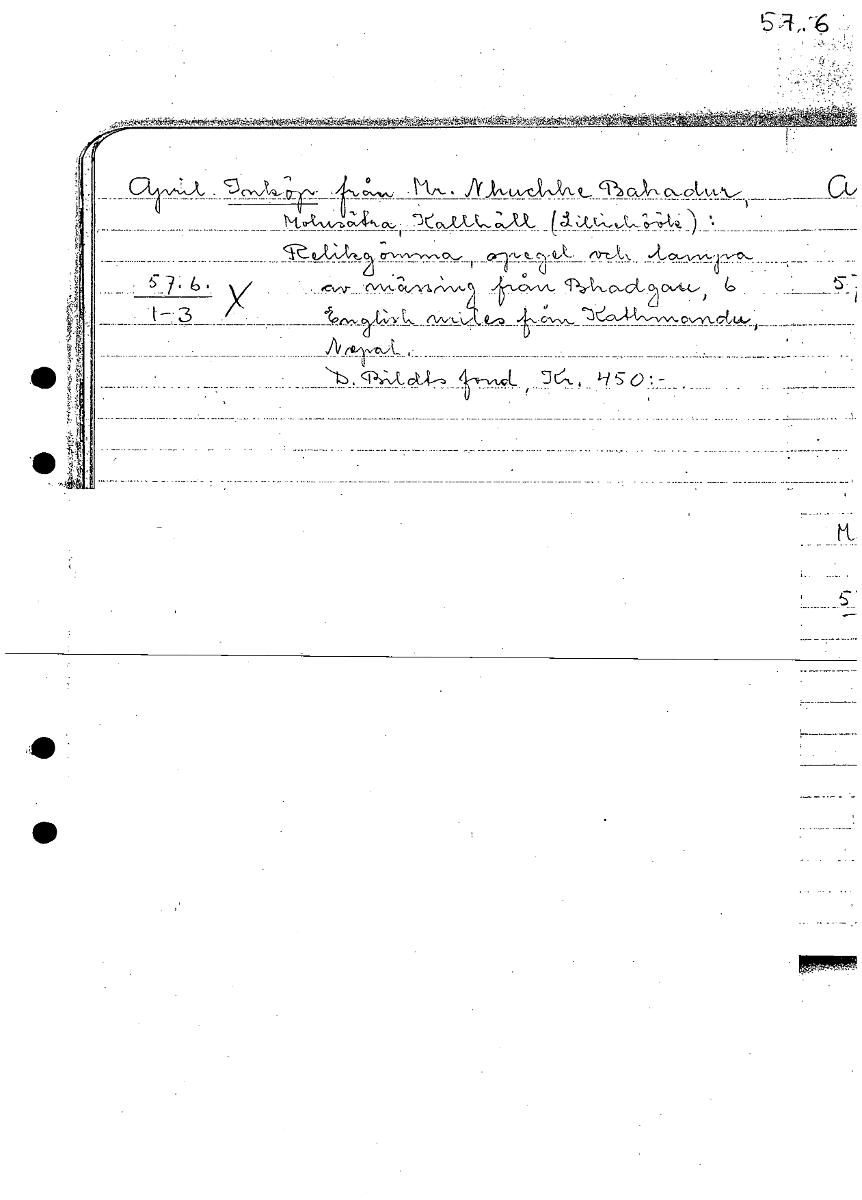 57.6
April. Inköp från Mr. Nhuchhe Bahadur,
Kallhäll (Lilliehöök):
Relikgömma, spegel och lampa
57.6. av mässing från Bhadgau, 6
1-3 X English miles från Kathmandu,
Nepal.
D. Bildts fond, Kr. 450:-
A
57
M
5